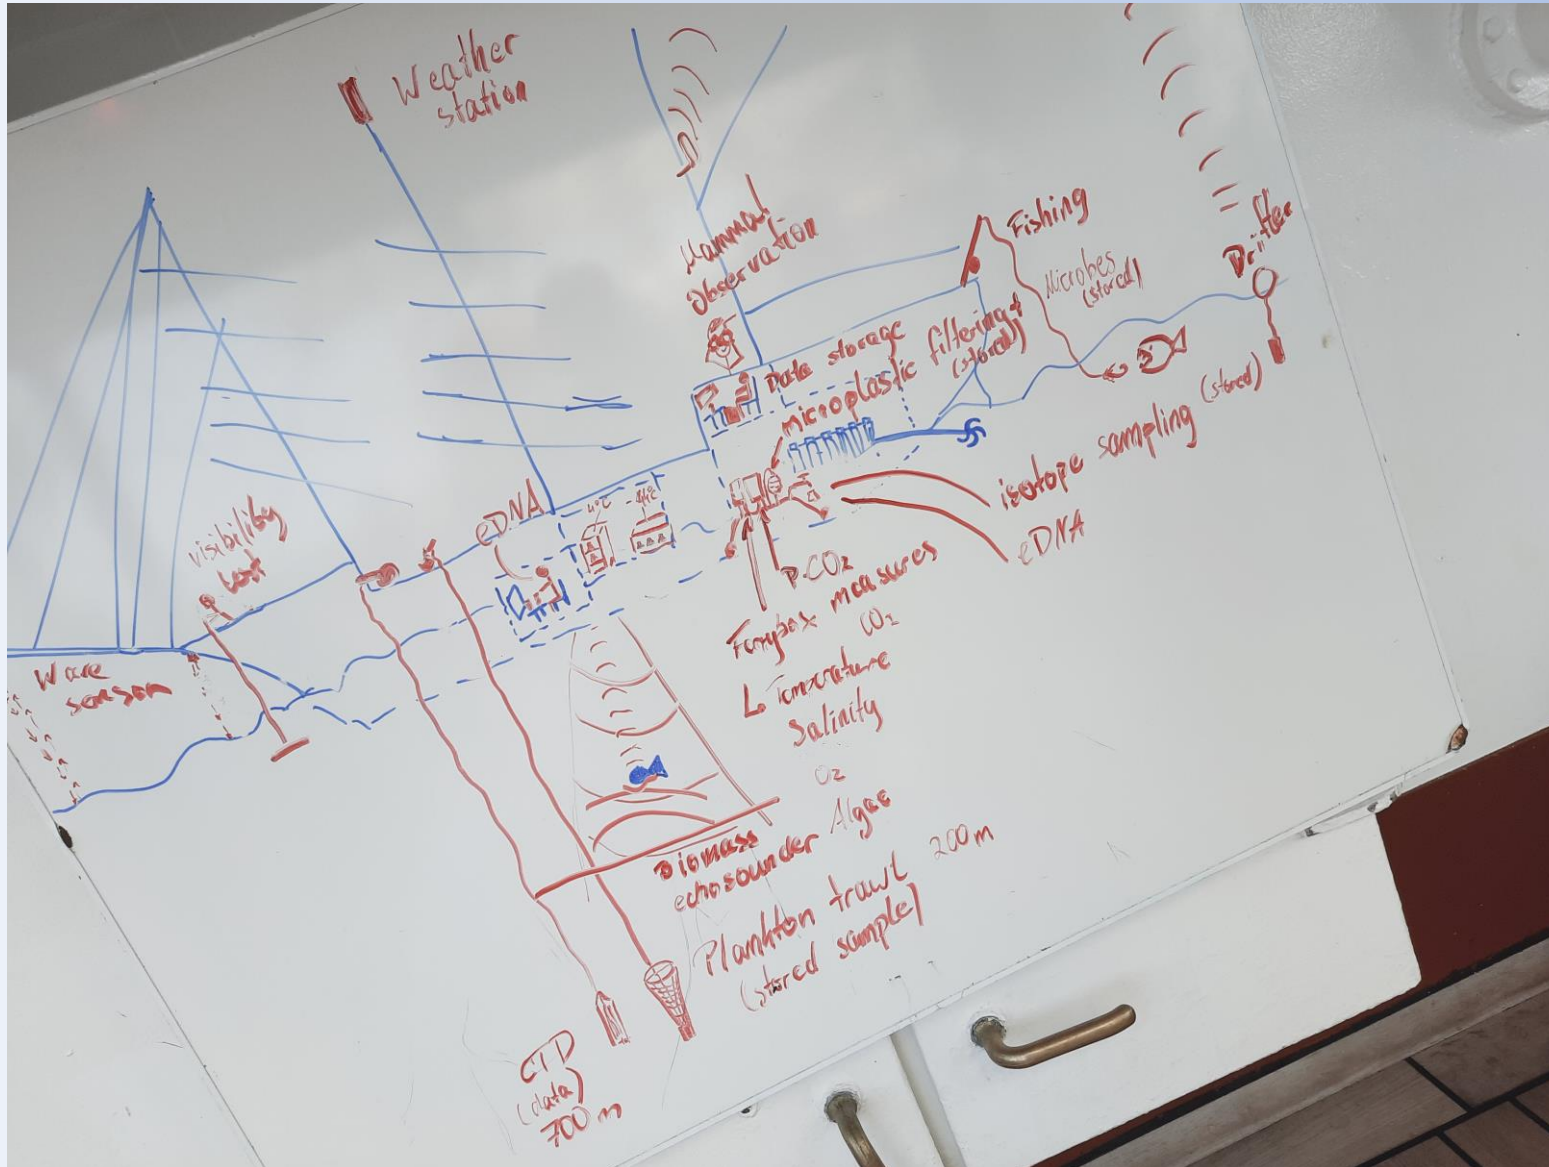 Weather
station
Mammal
Observation
Fishing
Microbes
(stored)
Drifter
(stored)
Data storage
Microplastic filtering +
(stored)
isotope sampling
eDNA
eDNA
4°C
visibility
test
Wave
sensor
P-CO2
Ferrybox measures
CO2
Temperature
Salinity
O2
Algae
Biomass
echosounder
Plankton trawl 200m
(stored sample)
CTD
(data)
700m